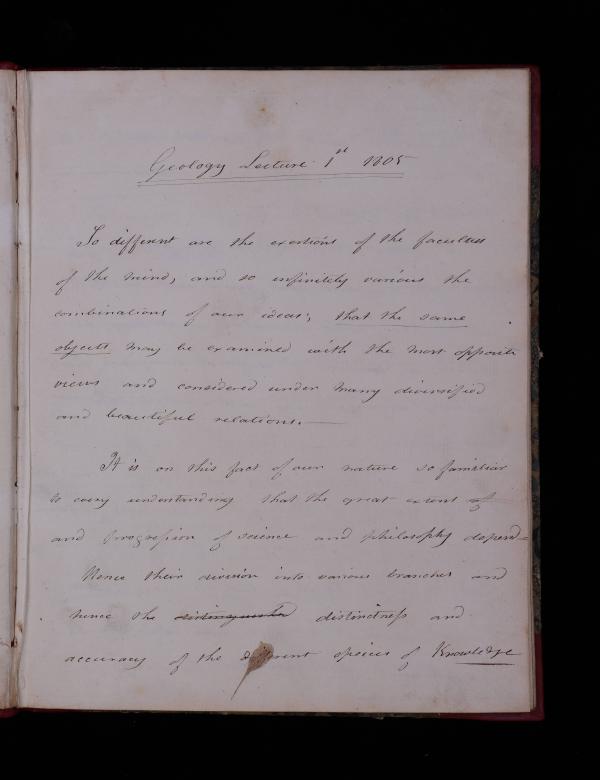 Geology Lecture 1st 1805
So different are the exertions of the faculties
of the mind, and so infinitely various the
combinations of our ideas; that the same
objects may be examined with the most opposite
views and considered under many diversified
and beautiful relations.—
It is on this fact of our nature so familiar
to every understanding that the great extent of
and Progression of science and philosophy depend=
Hence their division into various branches and
hence the distinguished distinctness and
accuracy of the different species of Knowledge